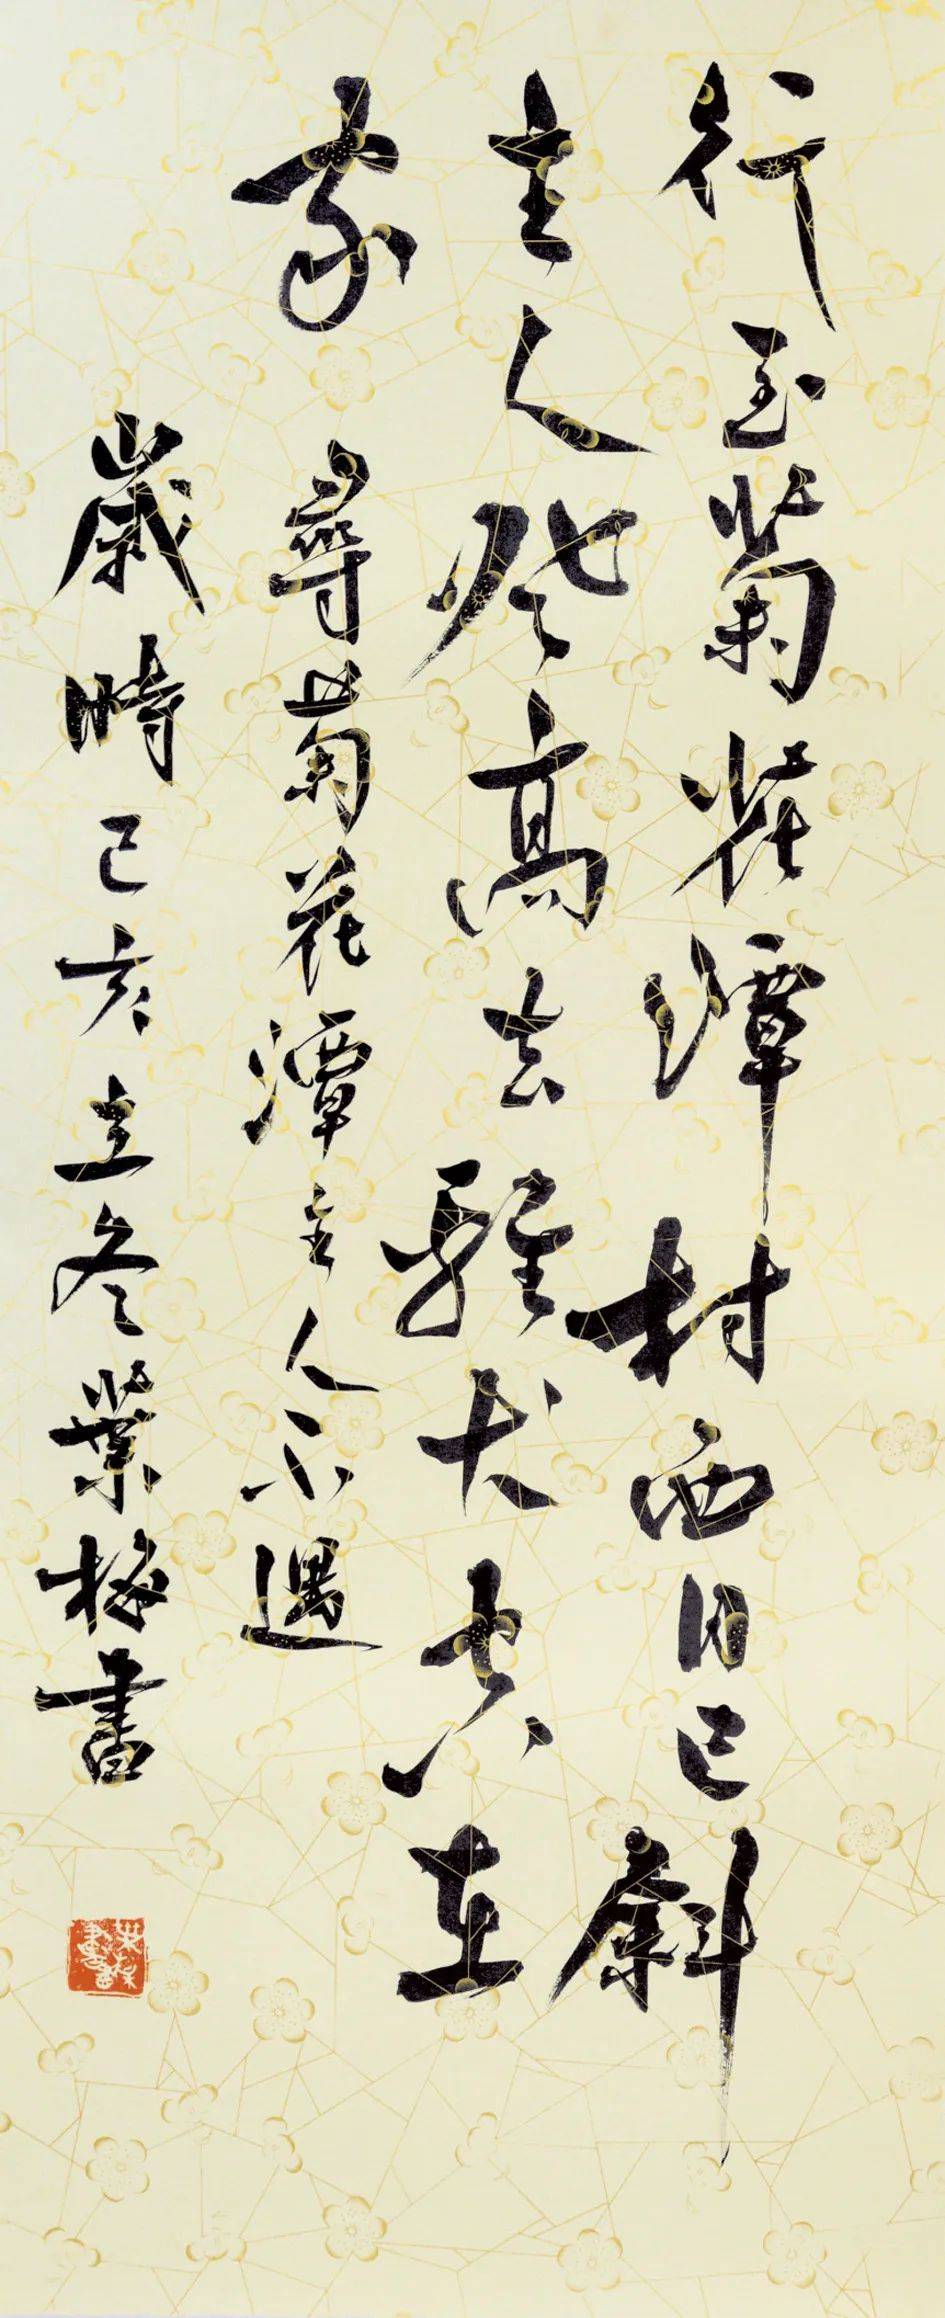 行至菊花潭村西日已斜
主人登高去雞犬空在
家 尋菊花潭主人不遇
歲時己亥立冬葉梅書